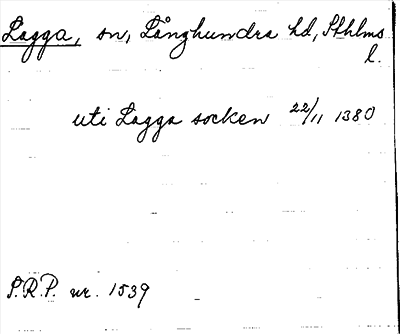 Lagga, sn, Långhundra hd, Sthlms
l.
uti Lagga socken 22/11 1380
S.R.P. nr. 1539